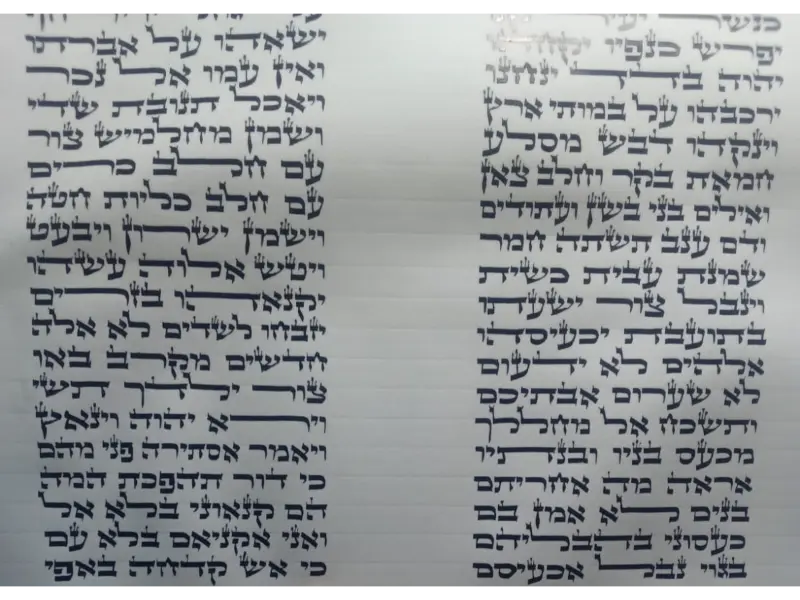 כנשר
יפרש כנפיו יקחהו
ישאהו על אברתו
יהוה בדד ינחנו
ואין עמו אל נכר
ירכבהו על במותי ארץ
ויאכל תנובת שדי
וינקהו דבש מסלע
ושמן מחלמיש צור
חמאת בקר וחלב צאן
עם חלב כרים
ואילים בני בשן ועתודים
עם חלב כליות חטה
ודם ענב תשתה חמר
וישמן ישרון ויבעט
שמנת עבית כשית
ויטש אלוה עשהו
וינבל צור ישעתו
יקנאהו בזרים
בתועבת יכעיסהו
יזבחו לשדים לא אלה
אלהים לא ידעום
חדשים מקרב באו
לא שערום אבתיכם
צור ילדך תשי
ותשכח אל מחללך
וירא יהוה וינאץ
מכעס בניו ובנתיו
ויאמר אסתירה פני מהם
אראה מה אחריתם
כי דור תהפכת המה
בנים לא אמן בם
הם קנאוני בלא אל
כעסוני בהבליהם
ואני אקניאם בלא עם
בגוי נבל אכעיסם
כי אש קדחה באפי